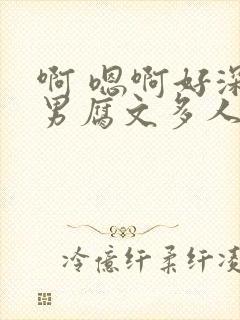 啊 嗯啊好深
男腐文多人
冷億纤柔纤凌